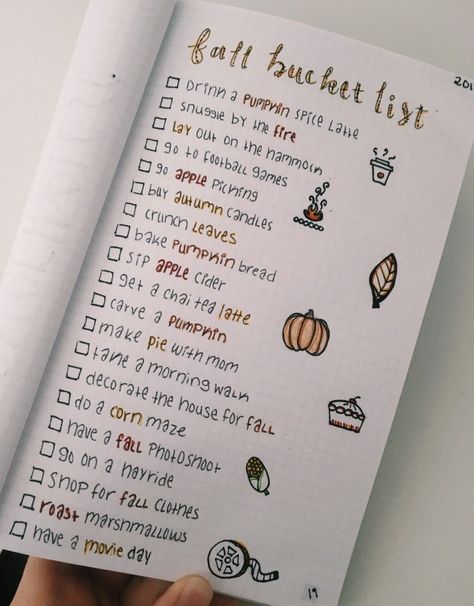 fall bucket list
201
DRINK a PUMPKIN SPICE Latte
SNUGGLE BY tHE FIRE
LAY OUT ON tHE HAMMOCK
GO tO FOOtBALL GAMES
GO APPLE PICKING
BUY AUtUMN CANDLES
CRUNCH LEAVES
BAKE PUMPKIN BREAD
SIP APPLE CIDER
GEt A CHAI tEA LAttE
CARVE A PUMPKIN
MAKE PIE WItH MOM
tAKE A MORNING WALK
DECORAtE tHE HOUSE FOR FALL
DO A CORN MAZE
HAVE A FALL PHOtOSHOOt
GO ON A HAYRIDE
SHOP FOR FALL CLOtHES
ROASt MARSHMALLOWS
HAVE A MOVIE DAY
19